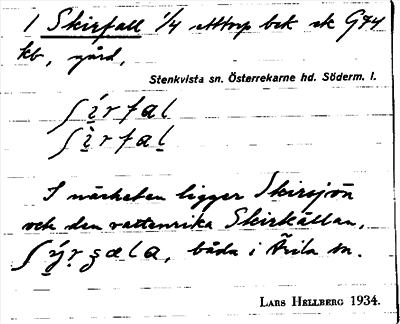 1 Skirfall 1/4 utttorp bek sk G74
kb, gård,
Stenkvista sn. Österrekarne hd. Söderm. l.
ʃírfal
ʃìrfal
I närheten ligger Skirsjön
och den vattenrika Skirkällan,
båda i Ärila sn.
LARS HELLBERG 1934.